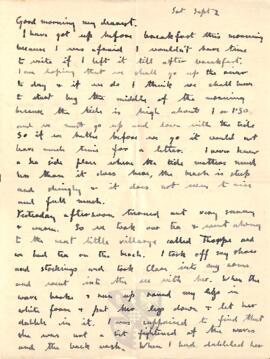 Sat Sept 2
Good morning my dearest.
I have got up before breakfast this morning
because I was afraid I wouldn't have time
to write if I left it till after breakfast.
I am hoping that we shall go up the river
to day & if we do I think we shall have
to start by the middle of the morning
because the tide is high about 1 or 1.30
and we must go up and down with the tide
So if we bathe before we go it would not
have much time for a letter. I never knew
a sea side place where the tide matters much
less than it does here, the beach is steep
and shingly & it does not seem to rise
and fall much.
Yesterday afternoon turned out very sunny
& warm. So we took our tea & went along
to the next little village called Thorpe and
we had tea on the beach. I took off my shoes
and stockings and took Clare into my arms
and went into the sea with her. When the
wave broke & ran up round my legs in
white foam & put her legs down & let her
dabble in it. I was surprised to find that
she was not a bit frightened of the waves
and the back wash. When I had dabbled her